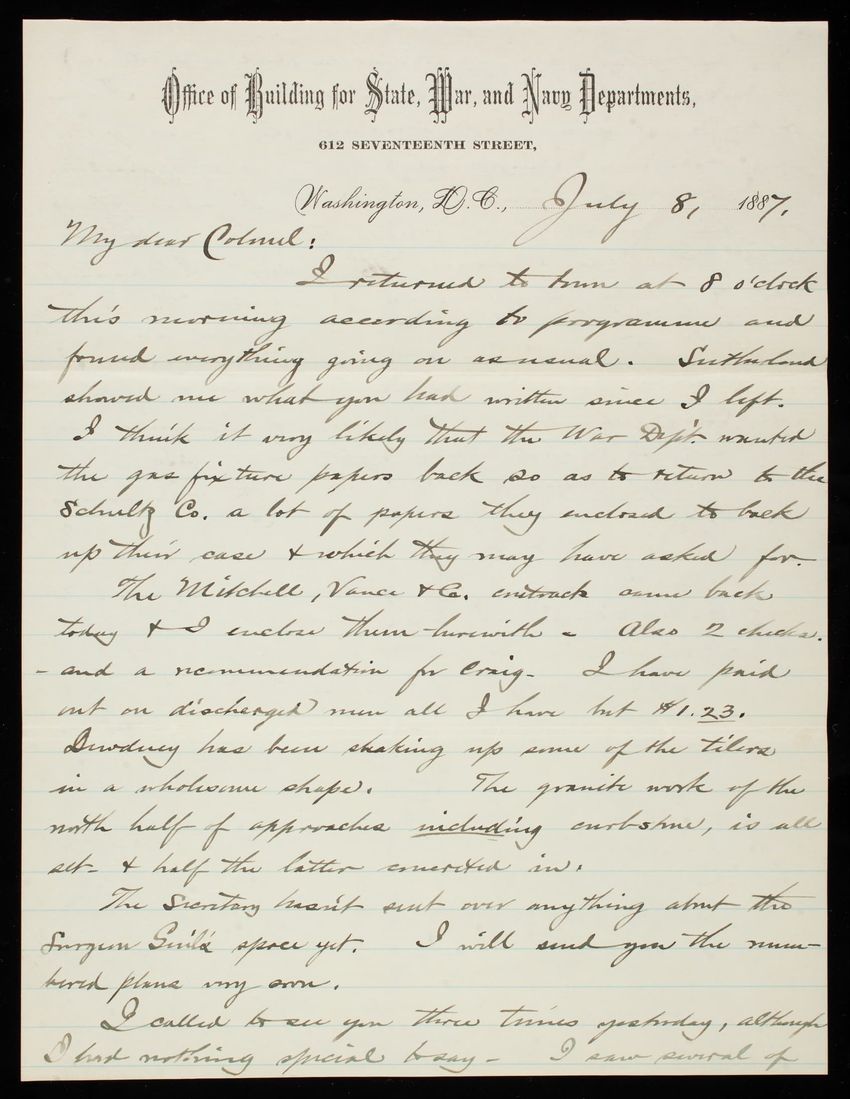 Office of Building for State, War, and Navy Departments,
612 SEVENTEENTH STREET,
Washington, D.C., July 8, 1887.
My dear Colonel:
I returned to town at 8 o'clock
this morning according to programme and
found everything going on as usual. Sutherland
showed me what you had written since I left.
I think it very likely that the War Dep't. wanted
the gas fixture papers back so as to return to the
Schultz Co. a lot of papers they enclosed to back
up their case & which they may have asked for.
The Mitchell, Vance & Co. contracts came back
today & I enclose them herewith - Also 2 checks.
- and a recommendation for Craig - I have paid
out on discharged men all I have but $1.23.
Dewdney has been shaking up some of the tilers
in a wholesome shape. The granite work of the
north half of approaches including curbstone, is all
set - & half the latter concreted in.
The Secretary hasn't sent over anything about the
Surgeon Genl's space yet. I will send you the num-
bered plans very soon.
I called to see you three times yesterday, although
I had nothing special to say - I saw several of